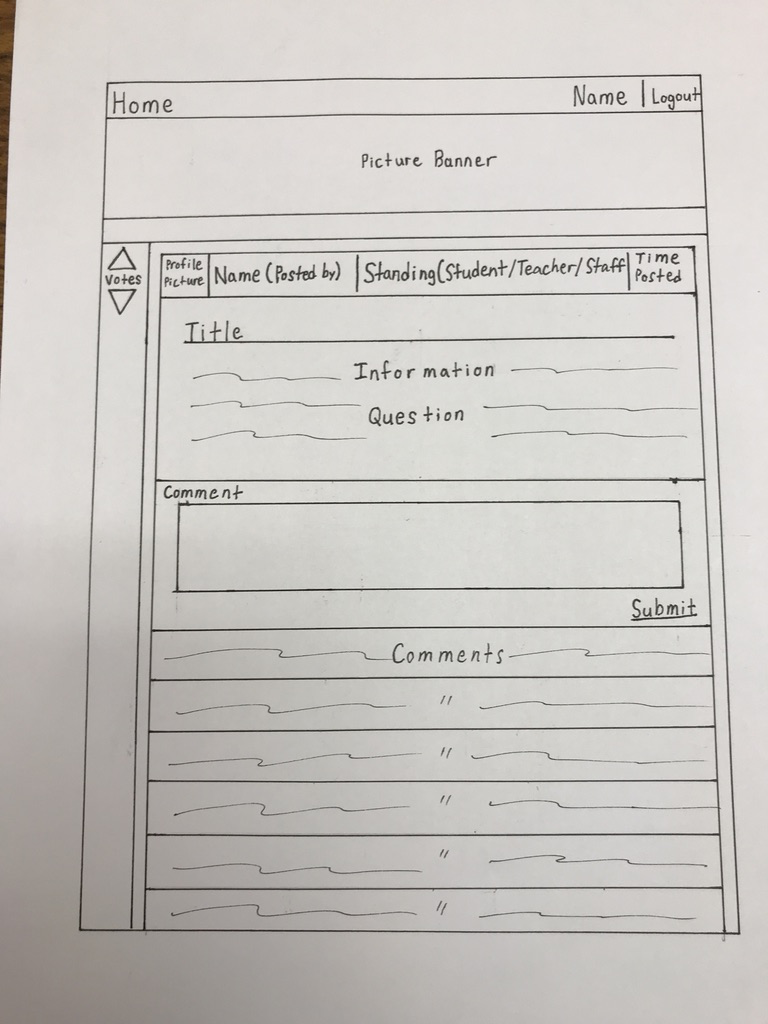 Home Name | Logout
Picture Banner
Votes
Profile Picture
Name (Posted by)
Standing(Student/Teacher/Staff
Time Posted
Title
Information
Question
Comment
Submit
Comments
"
"
"
"
"